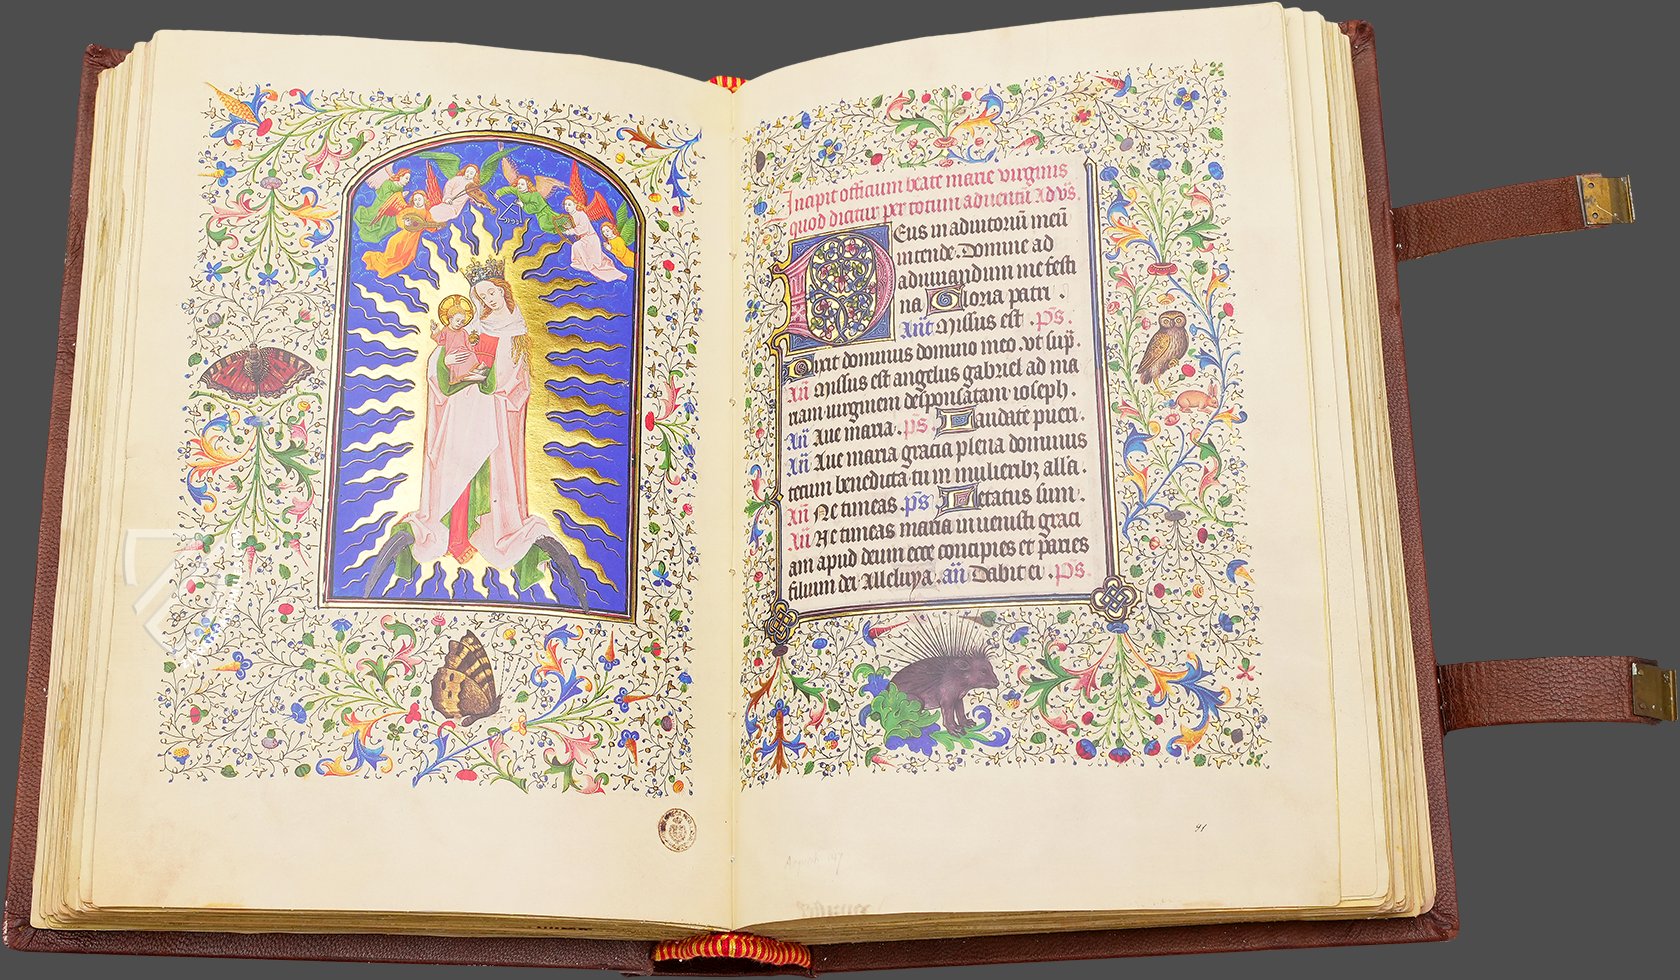 Incipit officium beate marie virginis
quod dicitur per totum aduentū Ad vs̄.
Deus in adiutoriū meū
intende. Domine ad
adiuuandum me festi
na Gloria patri .
Ant̄ Missus est . ps̄.
Dixit dominus domino meo. vt sup̄.
An̄ Missus est angelus gabriel ad ma
riam uirginem desponsatam ioseph.
An̄ Aue maria . ps̄ . Laudate pueri.
An̄ Aue maria gracia plena dominus
tecum benedicta tu in mulieribꝫ alla.
An̄ Ne timeas . ps̄ Letatus sum
An̄ Ne timeas maria inuenisti graci
am apud deum ecce concipies et paries
filium dei Alleluya . an̄ Dabit ei . ps̄.
91